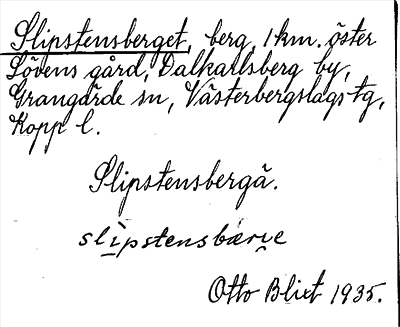 Slipstensberget, berg, 1 km. öster
Lövens gård, Dalkarlsberg by,
Grangärde sn, Västerbergslags tg,
Kopp l.
Slipstensbergä.
slipstensbærie
Otto Blixt 1935.